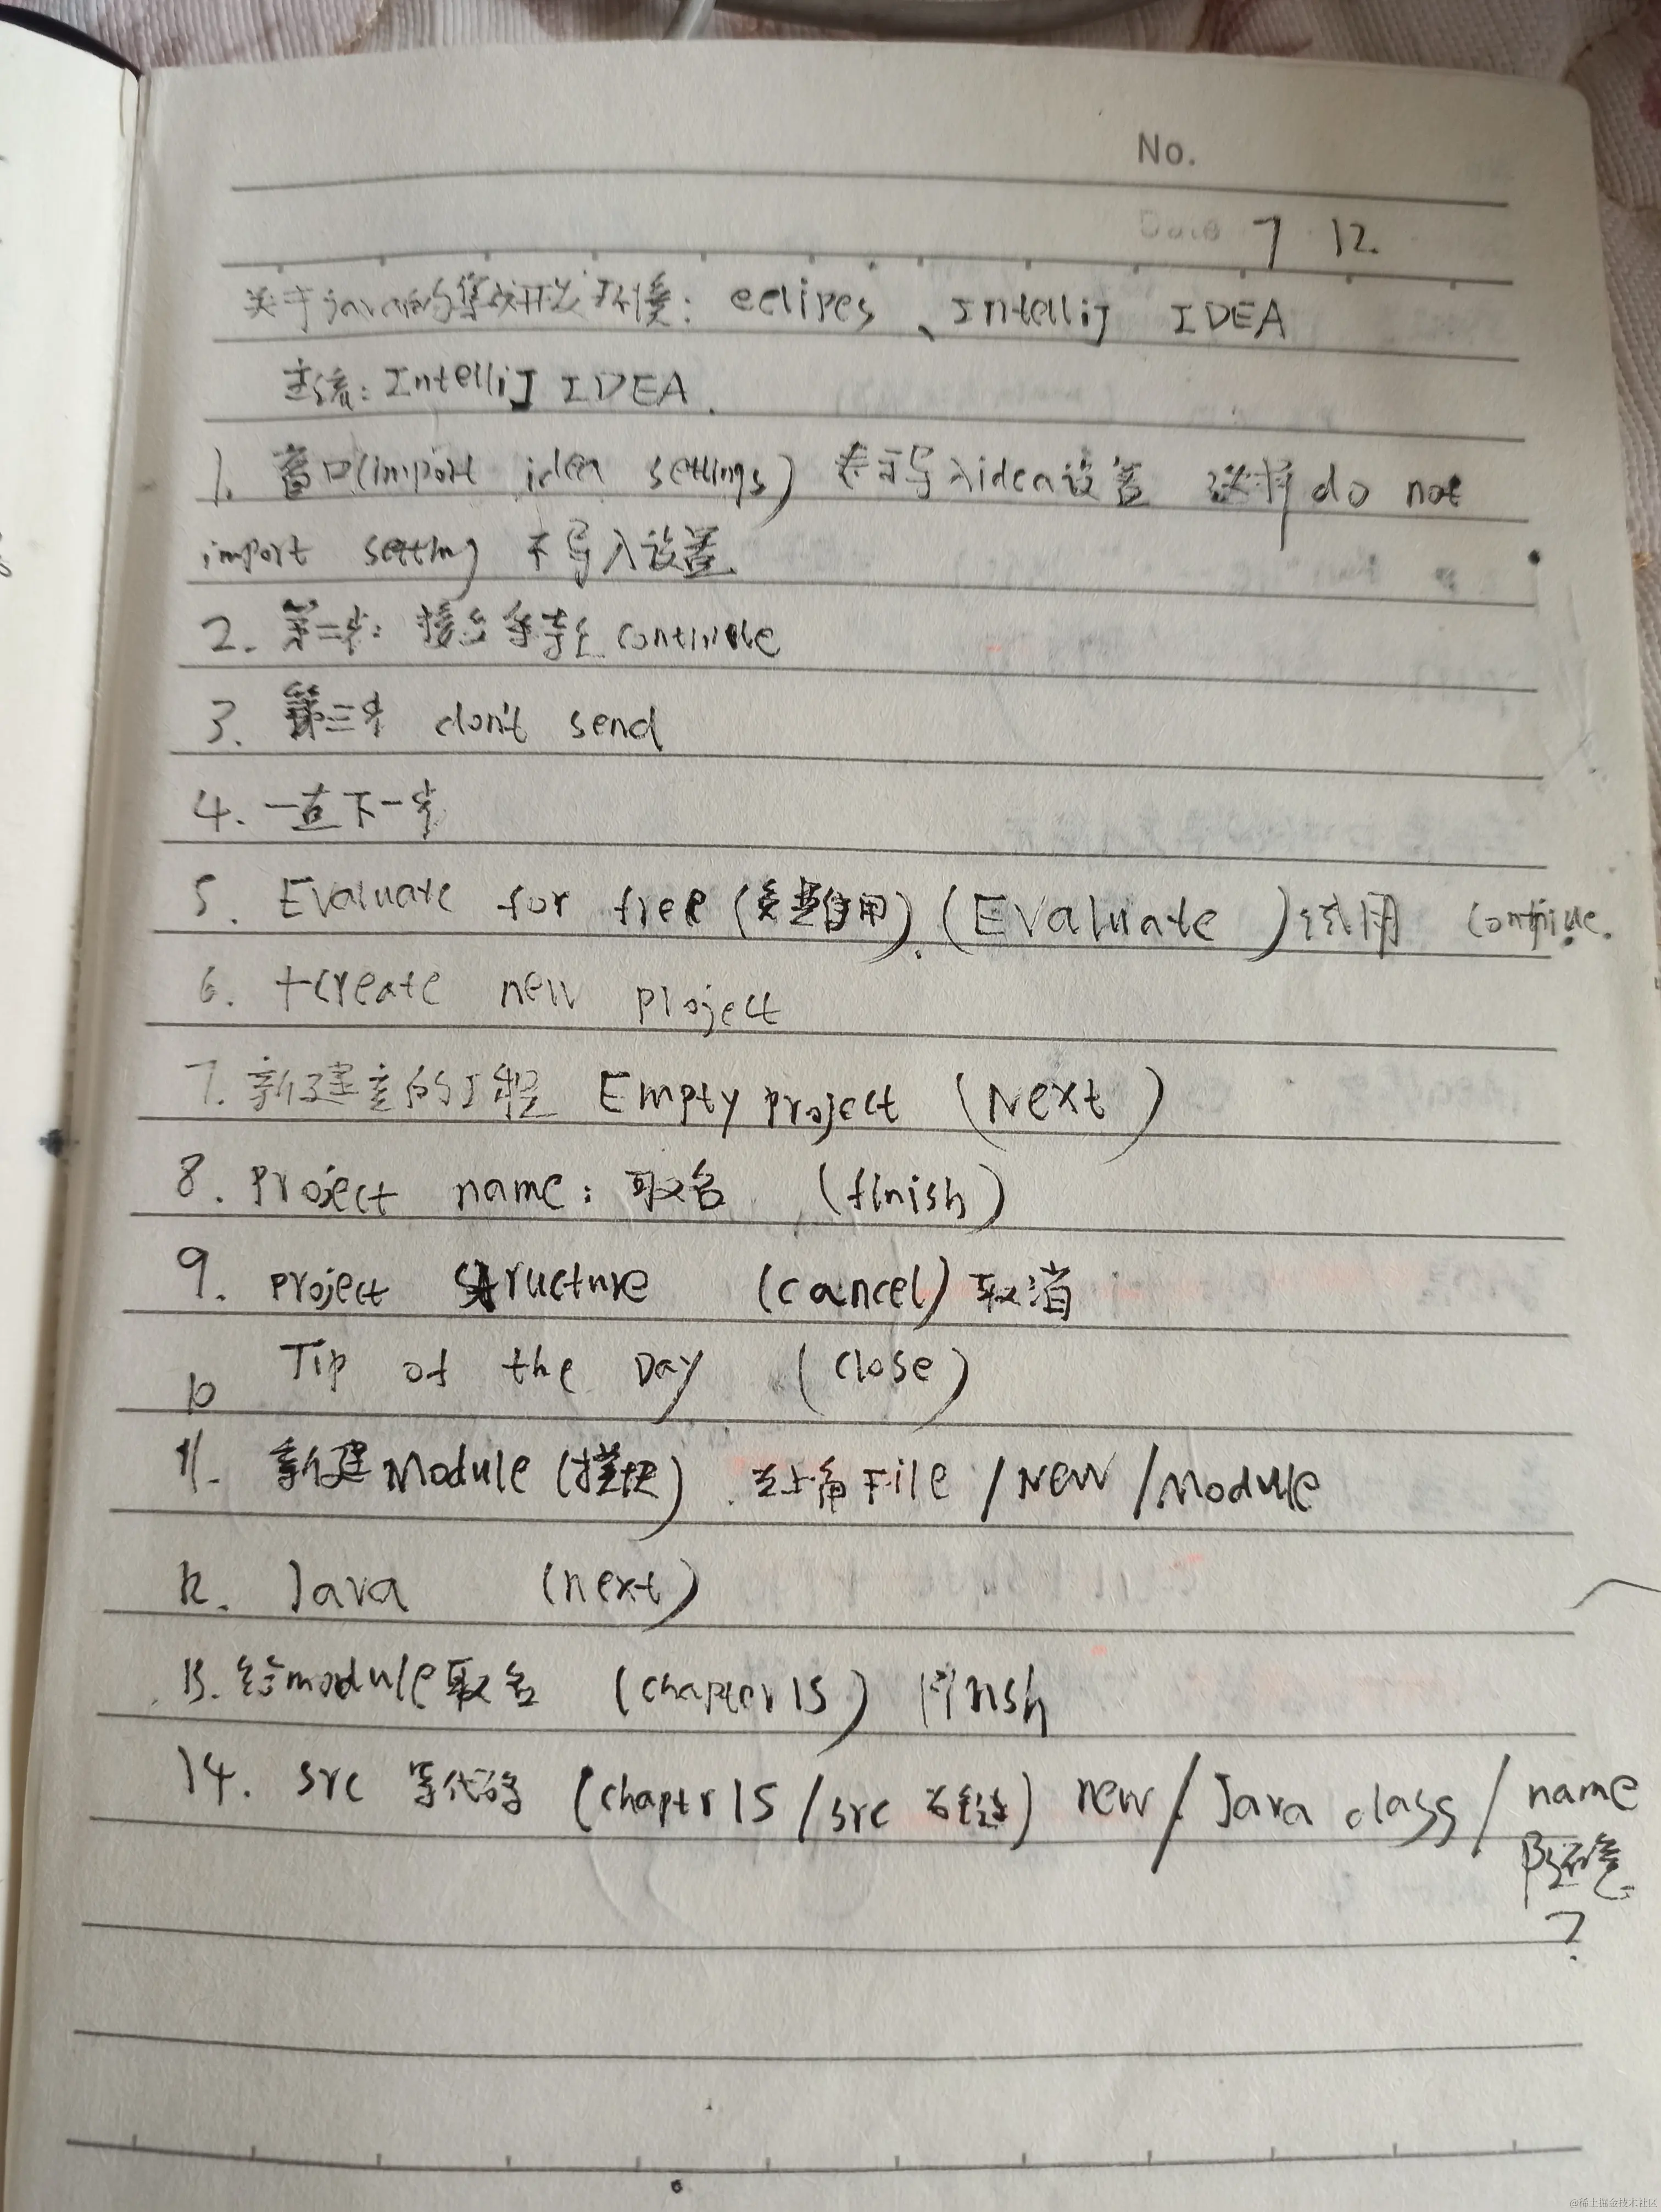 No.
Date 7 12.
关于java的集成开发环境: eclipes、Intellij IDEA
主流: Intellij IDEA.
1. 窗口(import idea settings) 表示导入idea设置 选择do not
import setting 不导入设置
2. 第二步: 接 continue
3. 第三步 don't send
4. 一直下一步
5. Evaluate for free (免费使用). (Evaluate) 试用 continue.
6. +create new project
7. 新建空的工程 Empty project (Next)
8. project name: 取名 (finish)
9. project structure (cancel) 取消
10 Tip of the Day (close)
11. 新建Module (模块) 左上角File / New / Module
12. Java (next)
13. 给module取名 (chapter15) finish
14. src 等代码 (chaptr15/src 右键) new / Java class / name
随意
?
@稀土掘金技术社区